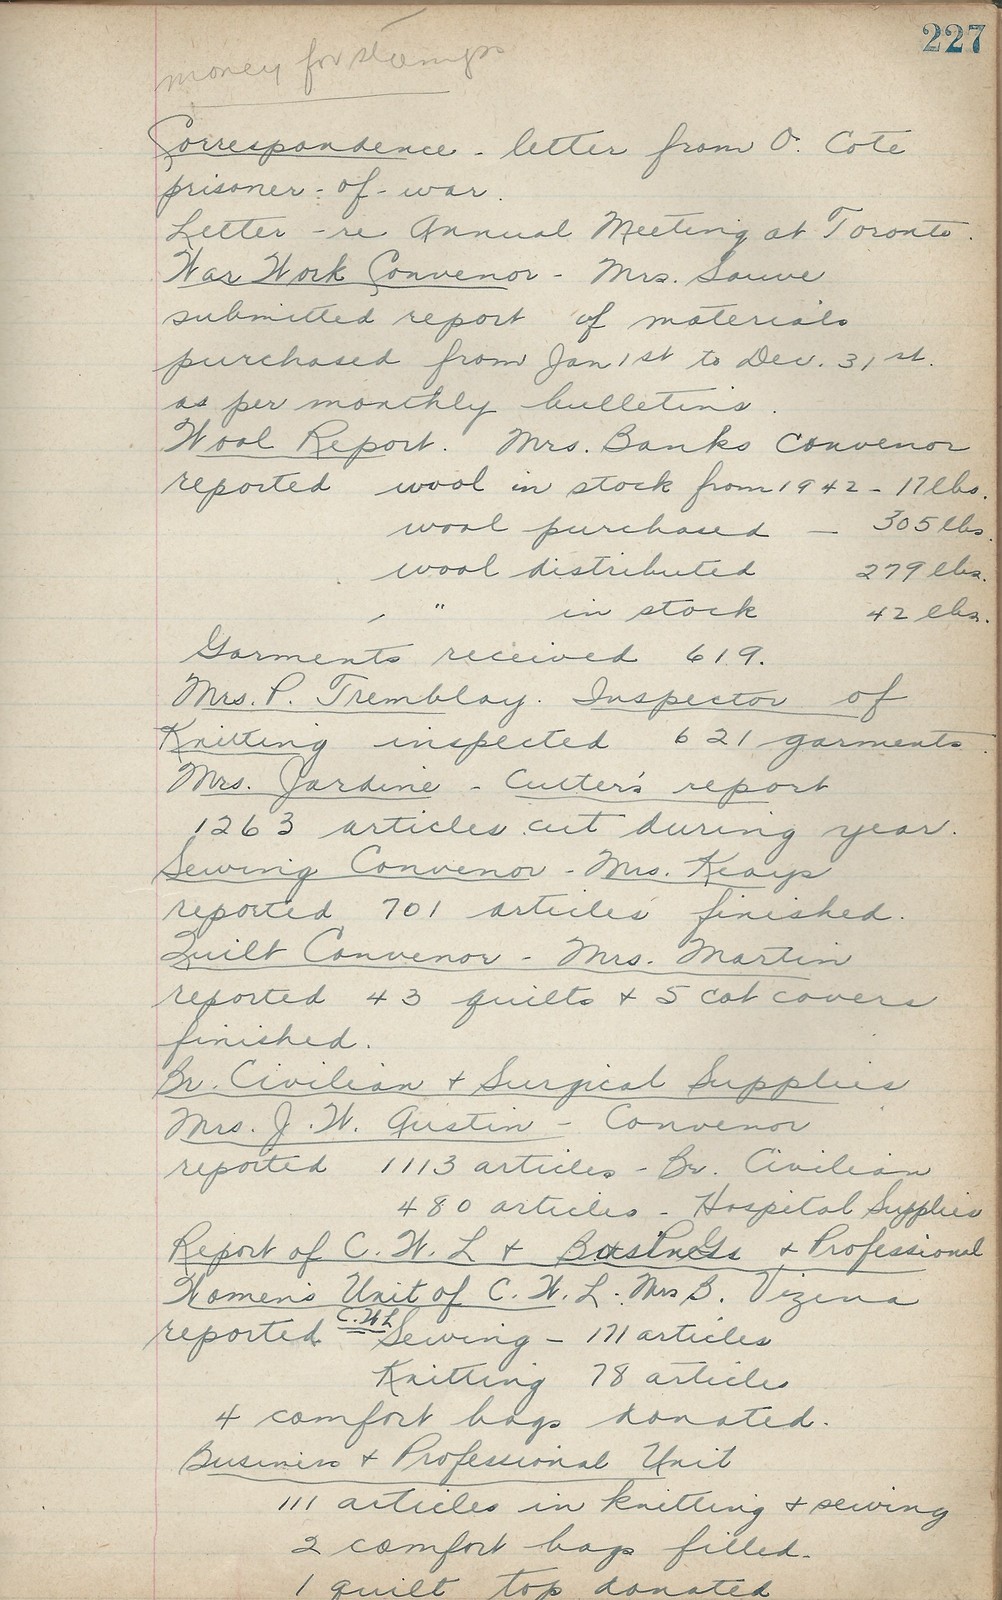 227
money for stamps
Correspondence - letter from O. Cote
prisoner-of-war.
Letter - re Annual Meeting at Toronto.
War Work Convenor - Mrs. Sauve
submitted report of materials
purchased from Jan 1st to Dec. 31st.
as per monthly bulletins.
Wool Report. Mrs. Banks Convenor
reported wool in stock from 1942 - 17 lbs.
wool purchased - 305 lbs.
wool distributed 279 lbs.
" in stock 42 lbs.
Garments received 619.
Mrs. P. Tremblay. Inspector of
Knitting inspected 621 garments.
Mrs. Jardine - Cutter's report
1263 articles cut during year.
Sewing Convenor - Mrs. Keays
reported 701 articles finished.
Quilt Convenor - Mrs. Martin
reported 43 quilts + 5 cot covers
finished.
Br. Civilian + Surgical Supplies
Mrs. J. W. Austin - Convenor
reported 1113 articles - Br. Civilian
480 articles - Hospital Supplies
Report of C. W. L + Business + Professional
Women's Unit of C. W. L. Mrs B. Vizena
reported C.W.L Sewing - 171 articles
Knitting 78 articles
4 comfort bags donated.
Business + Professional Unit
111 articles in knitting + sewing
2 comfort bags filled.
1 quilt top donated